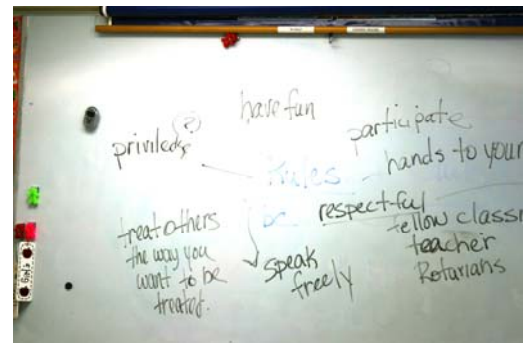 have fun
(?)
priviledge
participate
Rules
hands to your
be respectful
fellow class
teacher
Rotarians
treat others
the way you
want to be
treated.
speak
freely